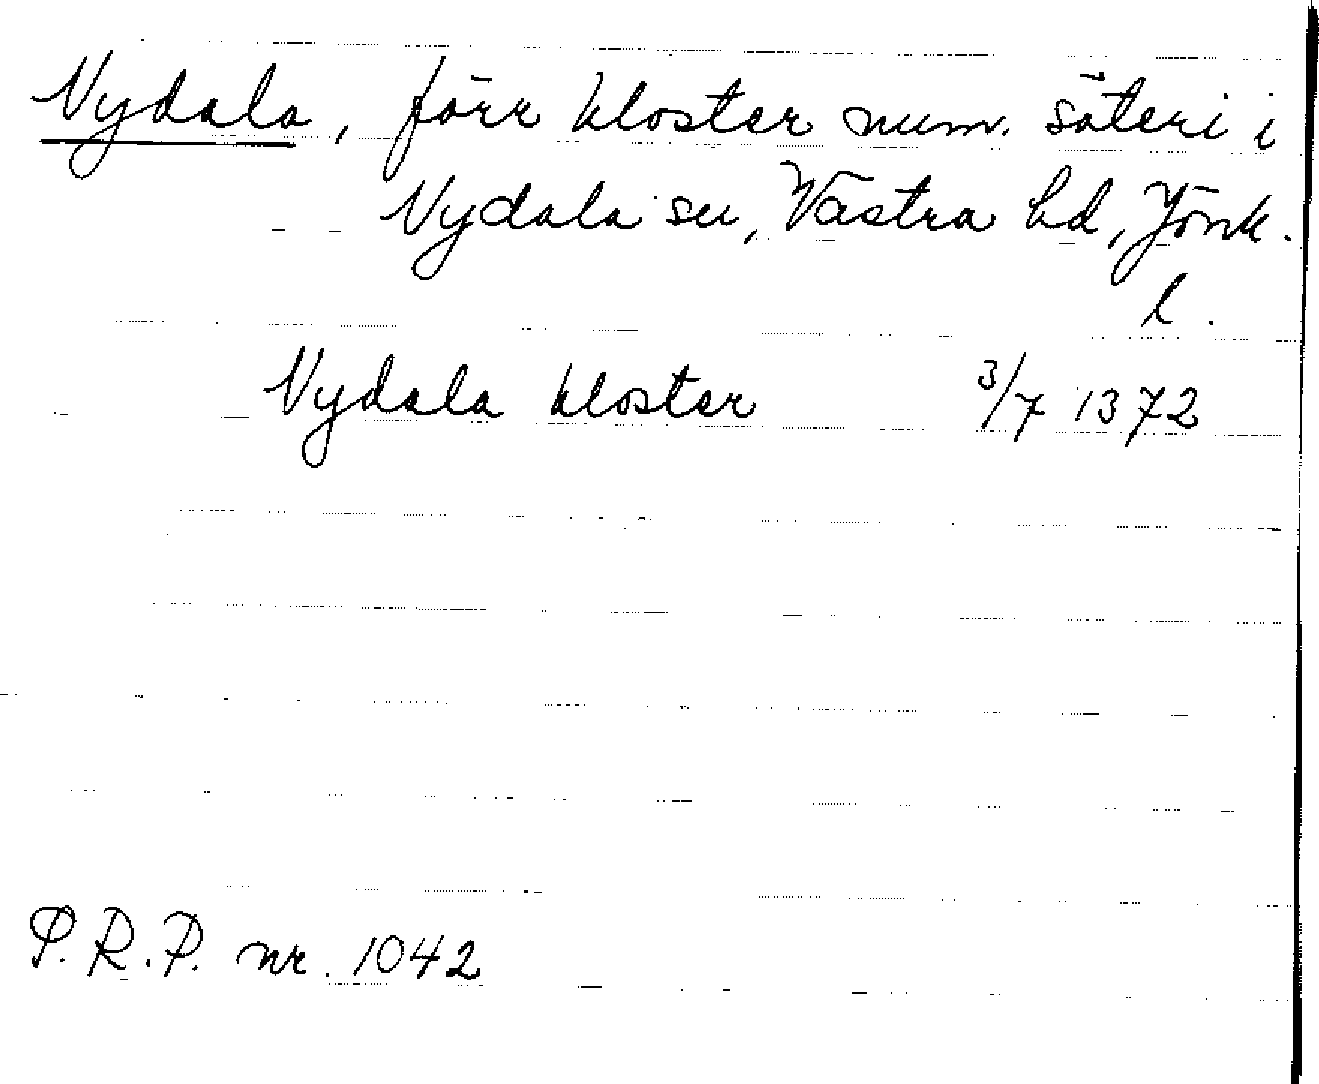 Nydala, förr kloster num. säteri i
Nydala sn, Västra hd, Jönk.
l.
Nydala kloster 3/7 1372
S.R.P. nr. 1042